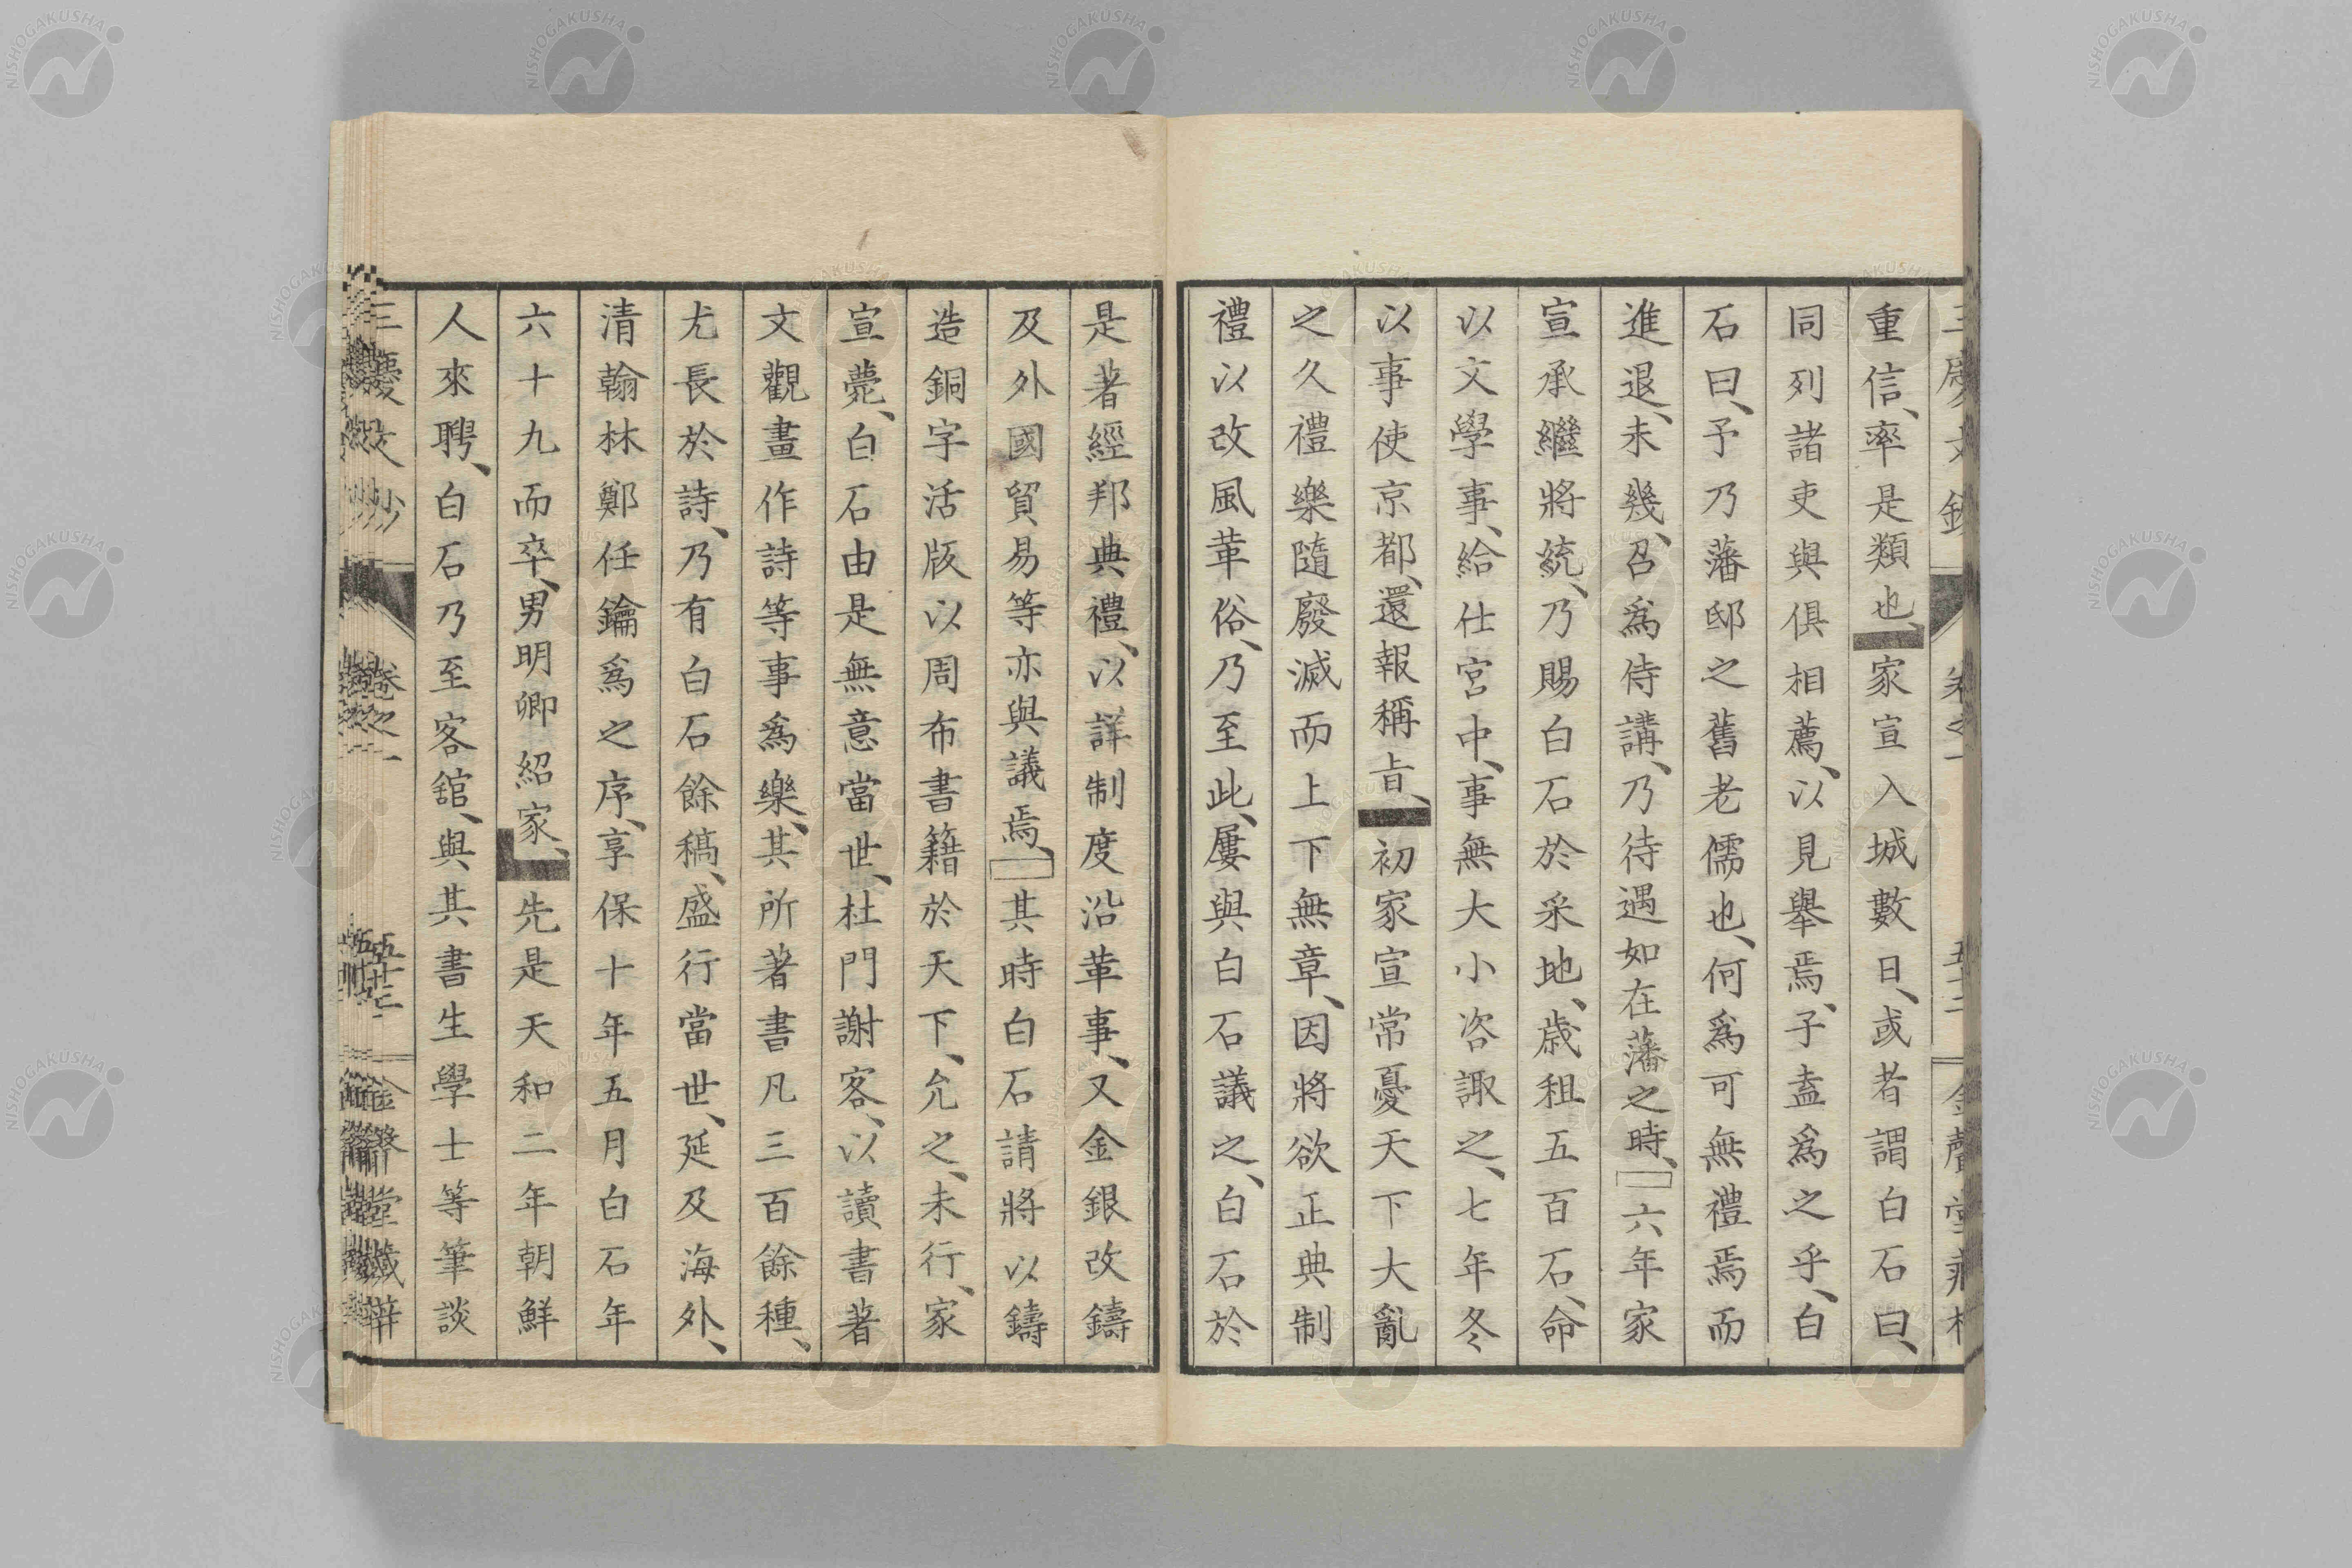 重信、率是類也、家宣入城數日、或者謂白石曰、
同列諸吏與俱相薦、以見擧焉、子盍爲之乎、白
石曰、予乃藩邸之舊老儒也、何爲可無禮焉而
進退、未幾、召爲侍講、乃待遇如在藩之時、六年家
宣承繼將統、乃賜白石於采地、歳租五百石、命
以文學事、給仕宮中、事無大小咨諏之、七年冬
以事使京都、還報稱旨、初家宣常憂天下大亂
之久禮樂隨廢滅而上下無章、因將欲正典制
禮以改風革俗、乃至此、屢與白石議之、白石於
是著經邦典禮、以詳制度沿革事、又金銀改鑄
及外國貿易等亦與議焉、其時白石請將以鑄
造銅字活版以周布書籍於天下、允之、未行、家
宣薨、白石由是無意當世、杜門謝客、以讀書著
文觀畫作詩等事爲樂、其所著書凡三百餘種、
尤長於詩、乃有白石餘稿、盛行當世、延及海外、
清翰林鄭任鑰爲之序、享保十年五月白石年
六十九而卒、男明卿紹家、先是天和二年朝鮮
人來聘、白石乃至客舘、與其書生學士等筆談
NISHOGAKUSHA